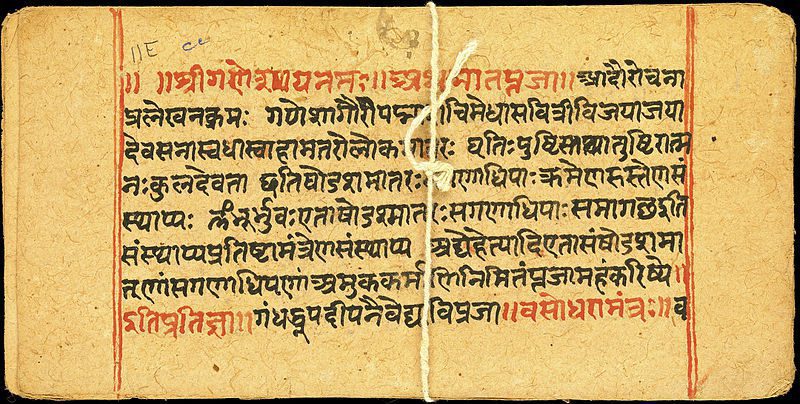 ॥E
॥ ॥श्रीगणेशायनमः॥अथमातृपूजा॥आदौरोचना
प्रलेखनक्रमः गणेशागौरीपद्मा चिमेधासवित्रीविजयाजया
देवसेनास्वधास्वाहामातरोलोकमातरः धृतिःपुष्टि तुष्टिरात्म
नःकुलदेवता इतिषोडशमातरः सगणाधिपाः क्रमेणहस्तेणसं
स्थाप्यः ॐभूर्भुवःएताषोडशमातरःसगणाधिपाःसमागछइति
संस्थाप्यप्रतिष्टामंत्रेणसंस्थाप्य अद्येहेत्यादिएतासंषोडशमा
तृणांसगणाधिपणांअमुककर्माणिनिमितंपूजामहंकरिष्ये॥
इतिप्रतिज्ञा॥गंधद्धूपदीपनैवेद्य विपूजा॥वसोधारामंत्रः॥व